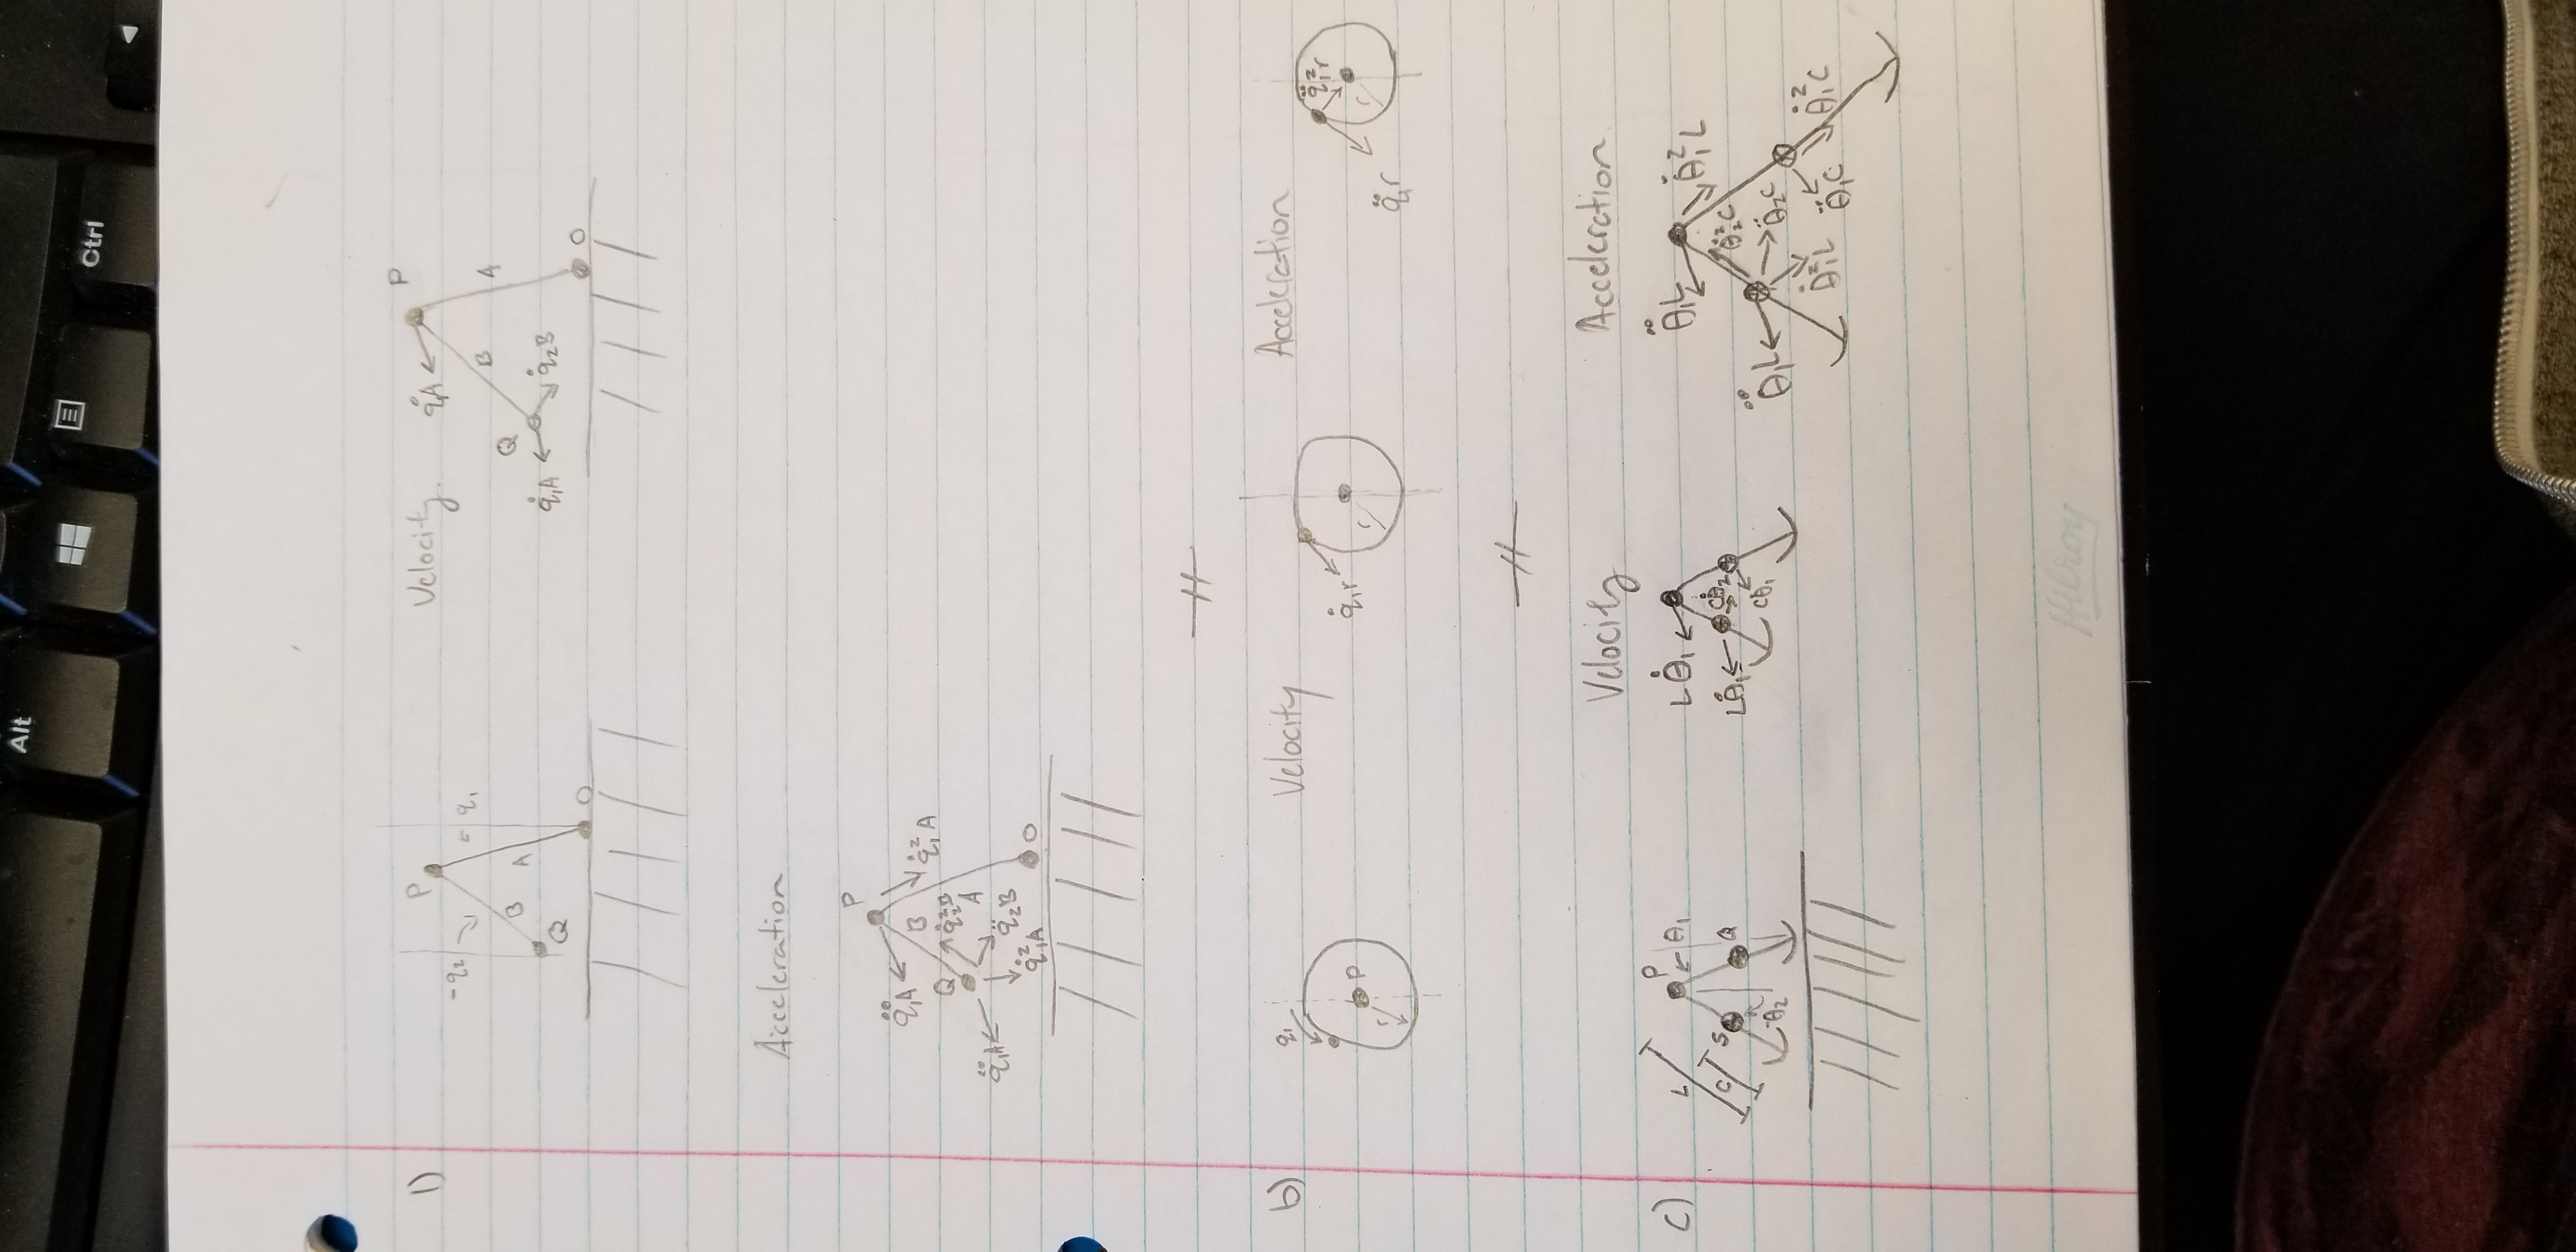 Alt
Ctrl
1)
P
-q₂
q₁
B
A
Q
O
Velocity.
P
q̇₁A
B
A
Q
q̇₁A
q̇₂B
O
Acceleration
P
q̈₁A
B
q̇₁²A
Q
q̇₂²B
A
q̈₁A
q̈₂B
q̇₁²A
O
b)
q₁
P
r
Velocity
q̇₁r
r
Acceleration
q̈₁²r
r
q̈₁r
c)
P
θ₁
L
C
S
Q
-θ₂
Velocity
Lθ̇₁
Lθ̇₁
Cθ̇₂
Cθ̇₁
Acceleration
θ̈₁L
θ̇₁²L
θ̇₂²C
θ̈₁L
θ̈₂C
θ̇₁²L
θ̈₁C
θ̇₁²C
Hilroy